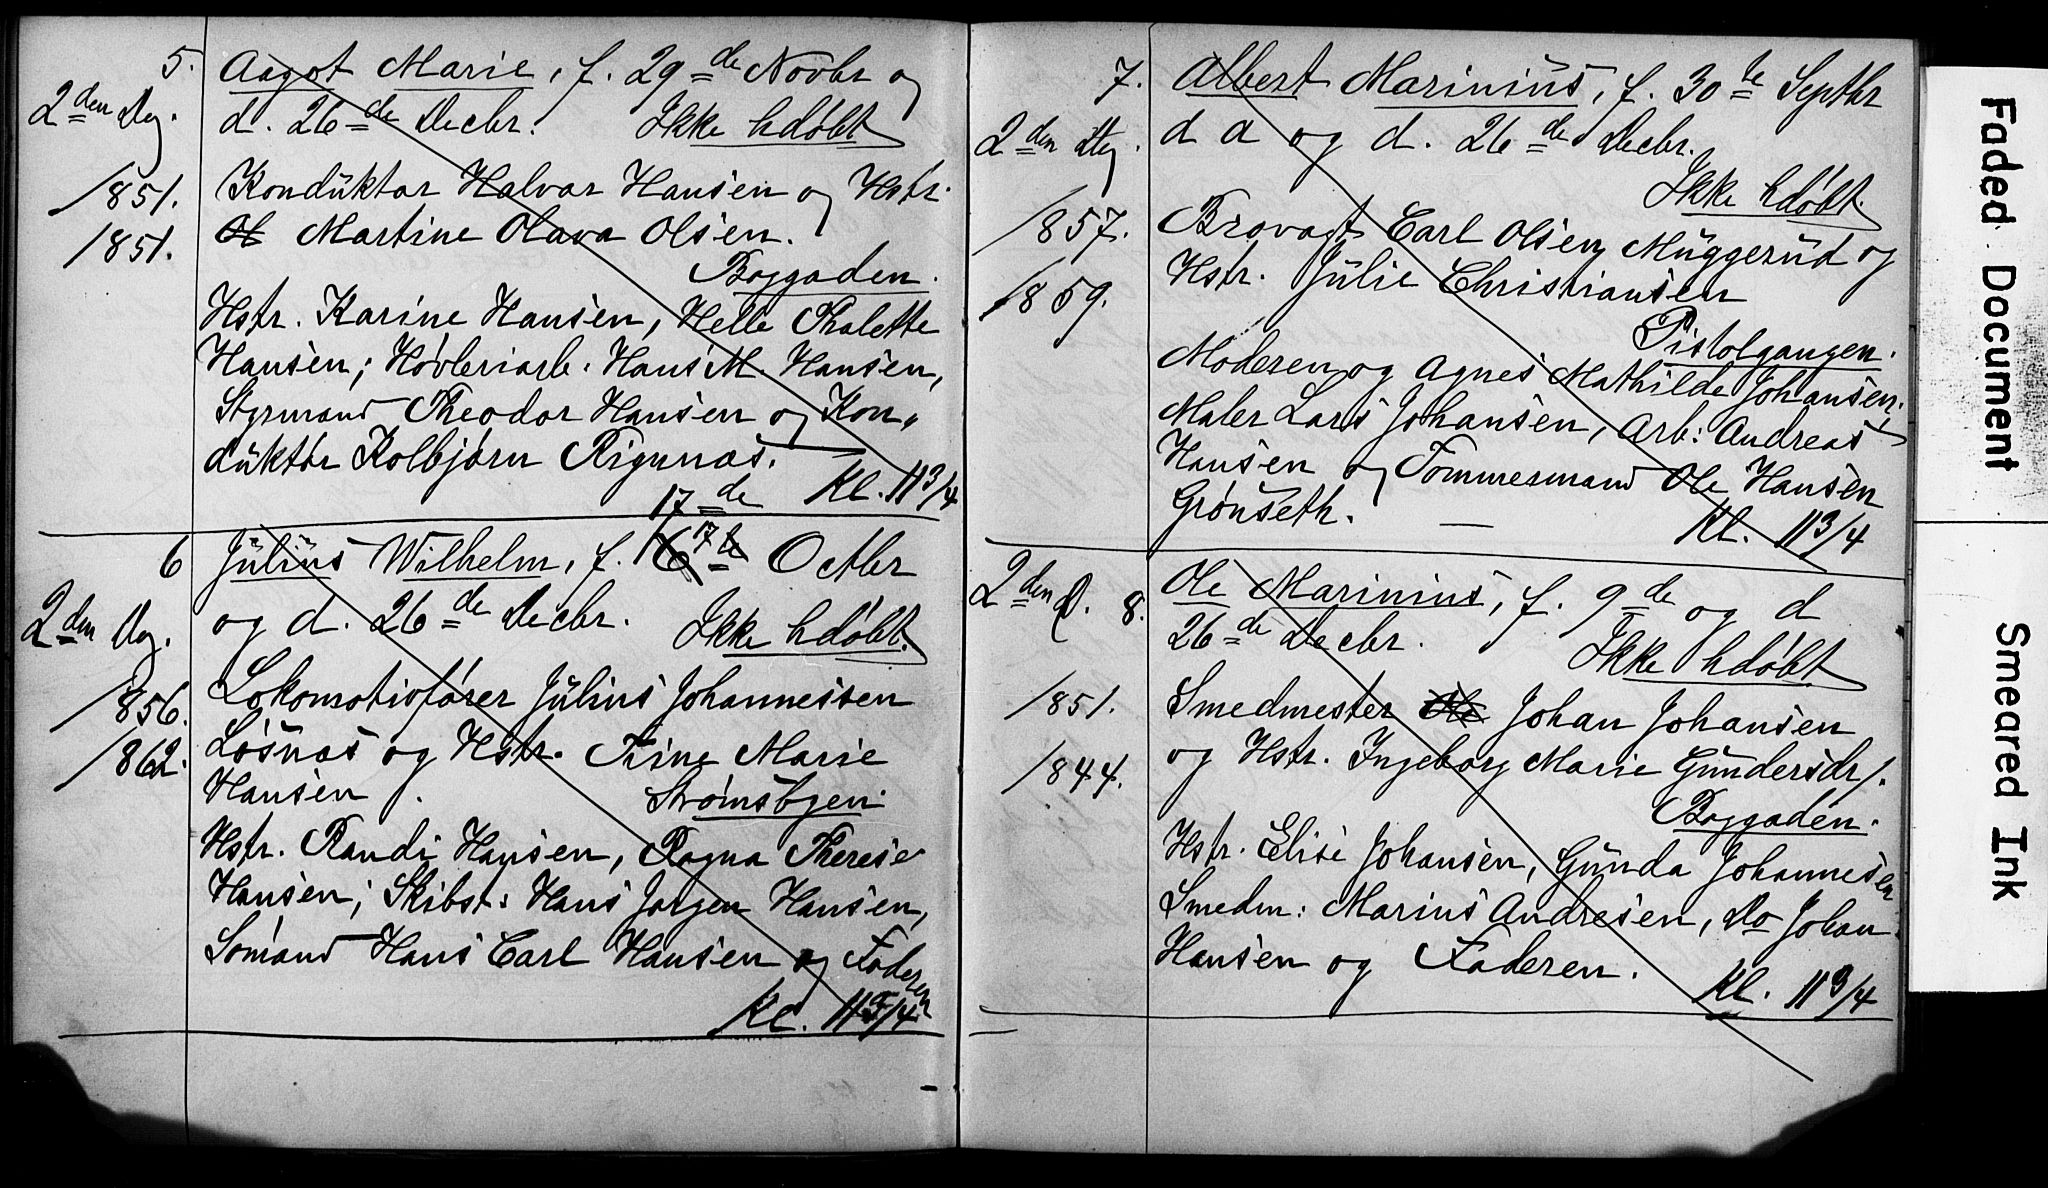 5. Aagot Marie, f. 29de Novbr og
2den Dag. d. 26de Decbr. Ikke hdøbt
1851. Konduktør Halvor Hansen og Hstr.
1851. Martine Olava Olsen.
Boggaden.
Hstr. Karine Hansen, Helle Thalette
Hansen; Høvleriarb. Hans M. Hansen,
Styrmand Theodor Hansen og Kon„
duktør Kolbjørn Rignnæs.
Kl. 11 3/4
17de
6 Julius Wilhelm, f. Octbr
2den Dag. og d. 26de Decbr. Ikke hdøbt.
1856. Lokomotivfører Julius Johannessen
1862. Løsnæs og Hstr. Trine Marie
Hansen. Strømsbyen.
Hstr. Randi Hansen, Ragna Therese
Hansen; Skibst: Hans Jørgen Hansen,
Sømand Hans Carl Hansen og Faderen
Kl. 11 3/4
7. Albert Marinius, f. 30te Septbr
2den Dag. d a og d. 26de Decbr.
Ikke hdøbt.
1857. Brovagt Carl Olsen Muggerud og
1859. Hstr. Julie Christiansen
Pistolgangen.
Moderen og Agnes Mathilde Johansen;
Maler Lars Johansen, Arb: Andreas
Hansen og Tømmermand Ole Hansen
Grønseth. Kl. 11 3/4
2den D. 8. Ole Marinius, f. 9de og d
26de Decbr. Ikke hdøbt
1851. Smedmester Johan Johansen
1844. og Hstr. Ingeborg Marie Gundersdr.
Boggaden.
Hstr. Elise Johansen, Gunda Johannesen
Smedm: Marius Andresen, Do Johan
Hansen og Faderen.
Kl. 11 3/4
Faded Document
Smeared Ink